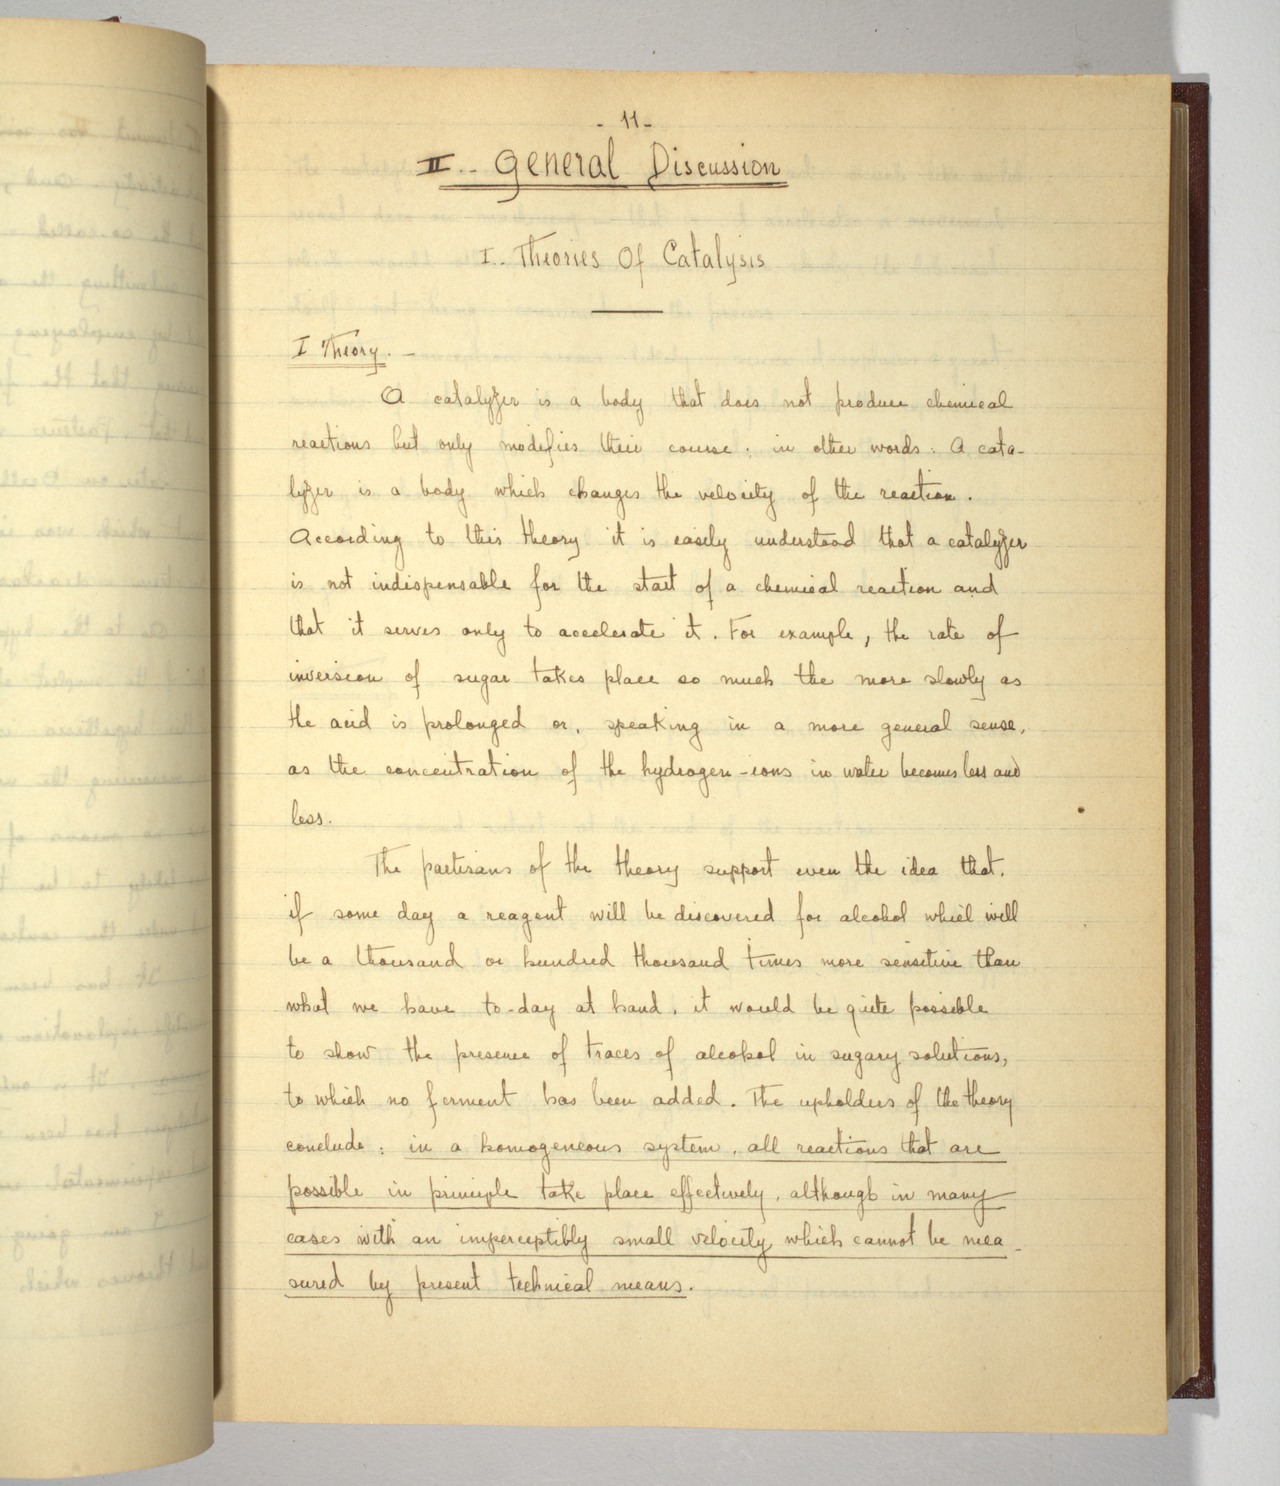 - 11 -
II.. General Discussion
I.. Theories Of Catalysis
I Theory. -
A catalyzer is a body that does not produce chemical
reactions but only modifies their course; in other words: A cata-
lyzer is a body which changes the velocity of the reaction.
According to this theory it is easily understood that a catalyzer
is not indispensable for the start of a chemical reaction and
that it serves only to accelerate it. For example, the rate of
inversion of sugar takes place so much the more slowly as
the acid is prolonged or, speaking in a more general sense,
as the concentration of the hydrogen-ions in water becomes less and
less.
The partisans of the theory support even the idea that,
if some day a reagent will be discovered for alcohol which will
be a thousand or hundred thousand times more sensitive than
what we have to-day at hand, it would be quite possible
to show the presence of traces of alcohol in sugary solutions,
to which no ferment has been added. The upholders of the theory
conclude: in a homogeneous system, all reactions that are
possible in principle take place effectively, although in many
cases with an imperceptibly small velocity which cannot be mea-
sured by present technical means.